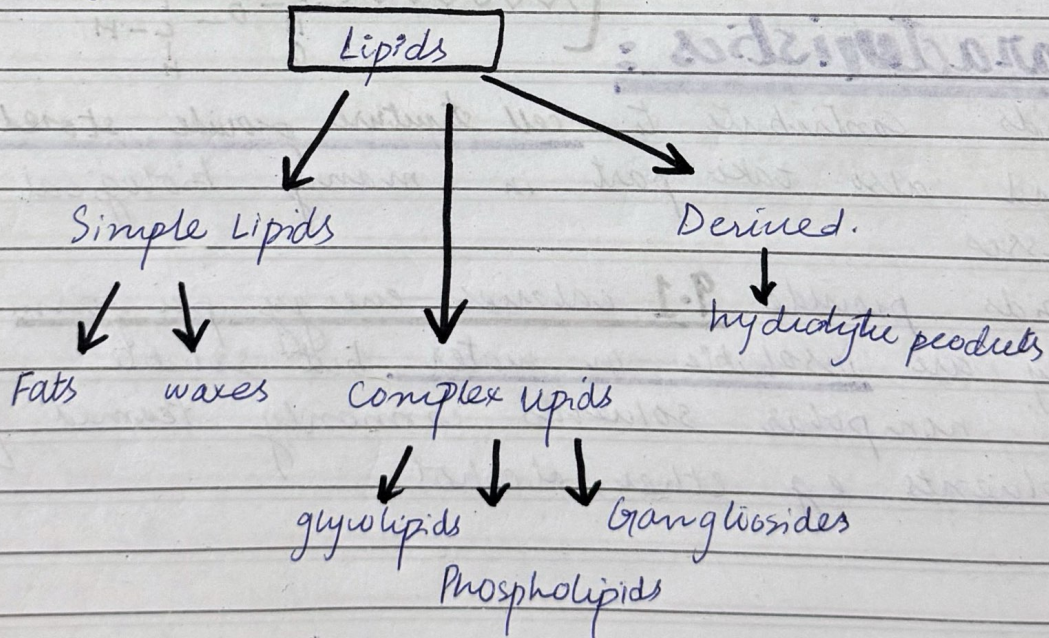 Lipids
Simple Lipids
Derived.
hydrolytic products
Fats
waxes
Complex Lipids
glycolipids
Gangliosides
Phospholipids